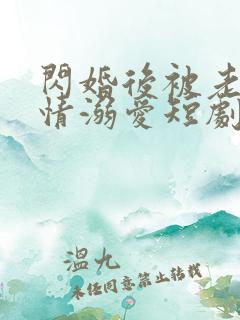 閃婚後被老
情溺愛短劇
溫九
未任同意禁止转载